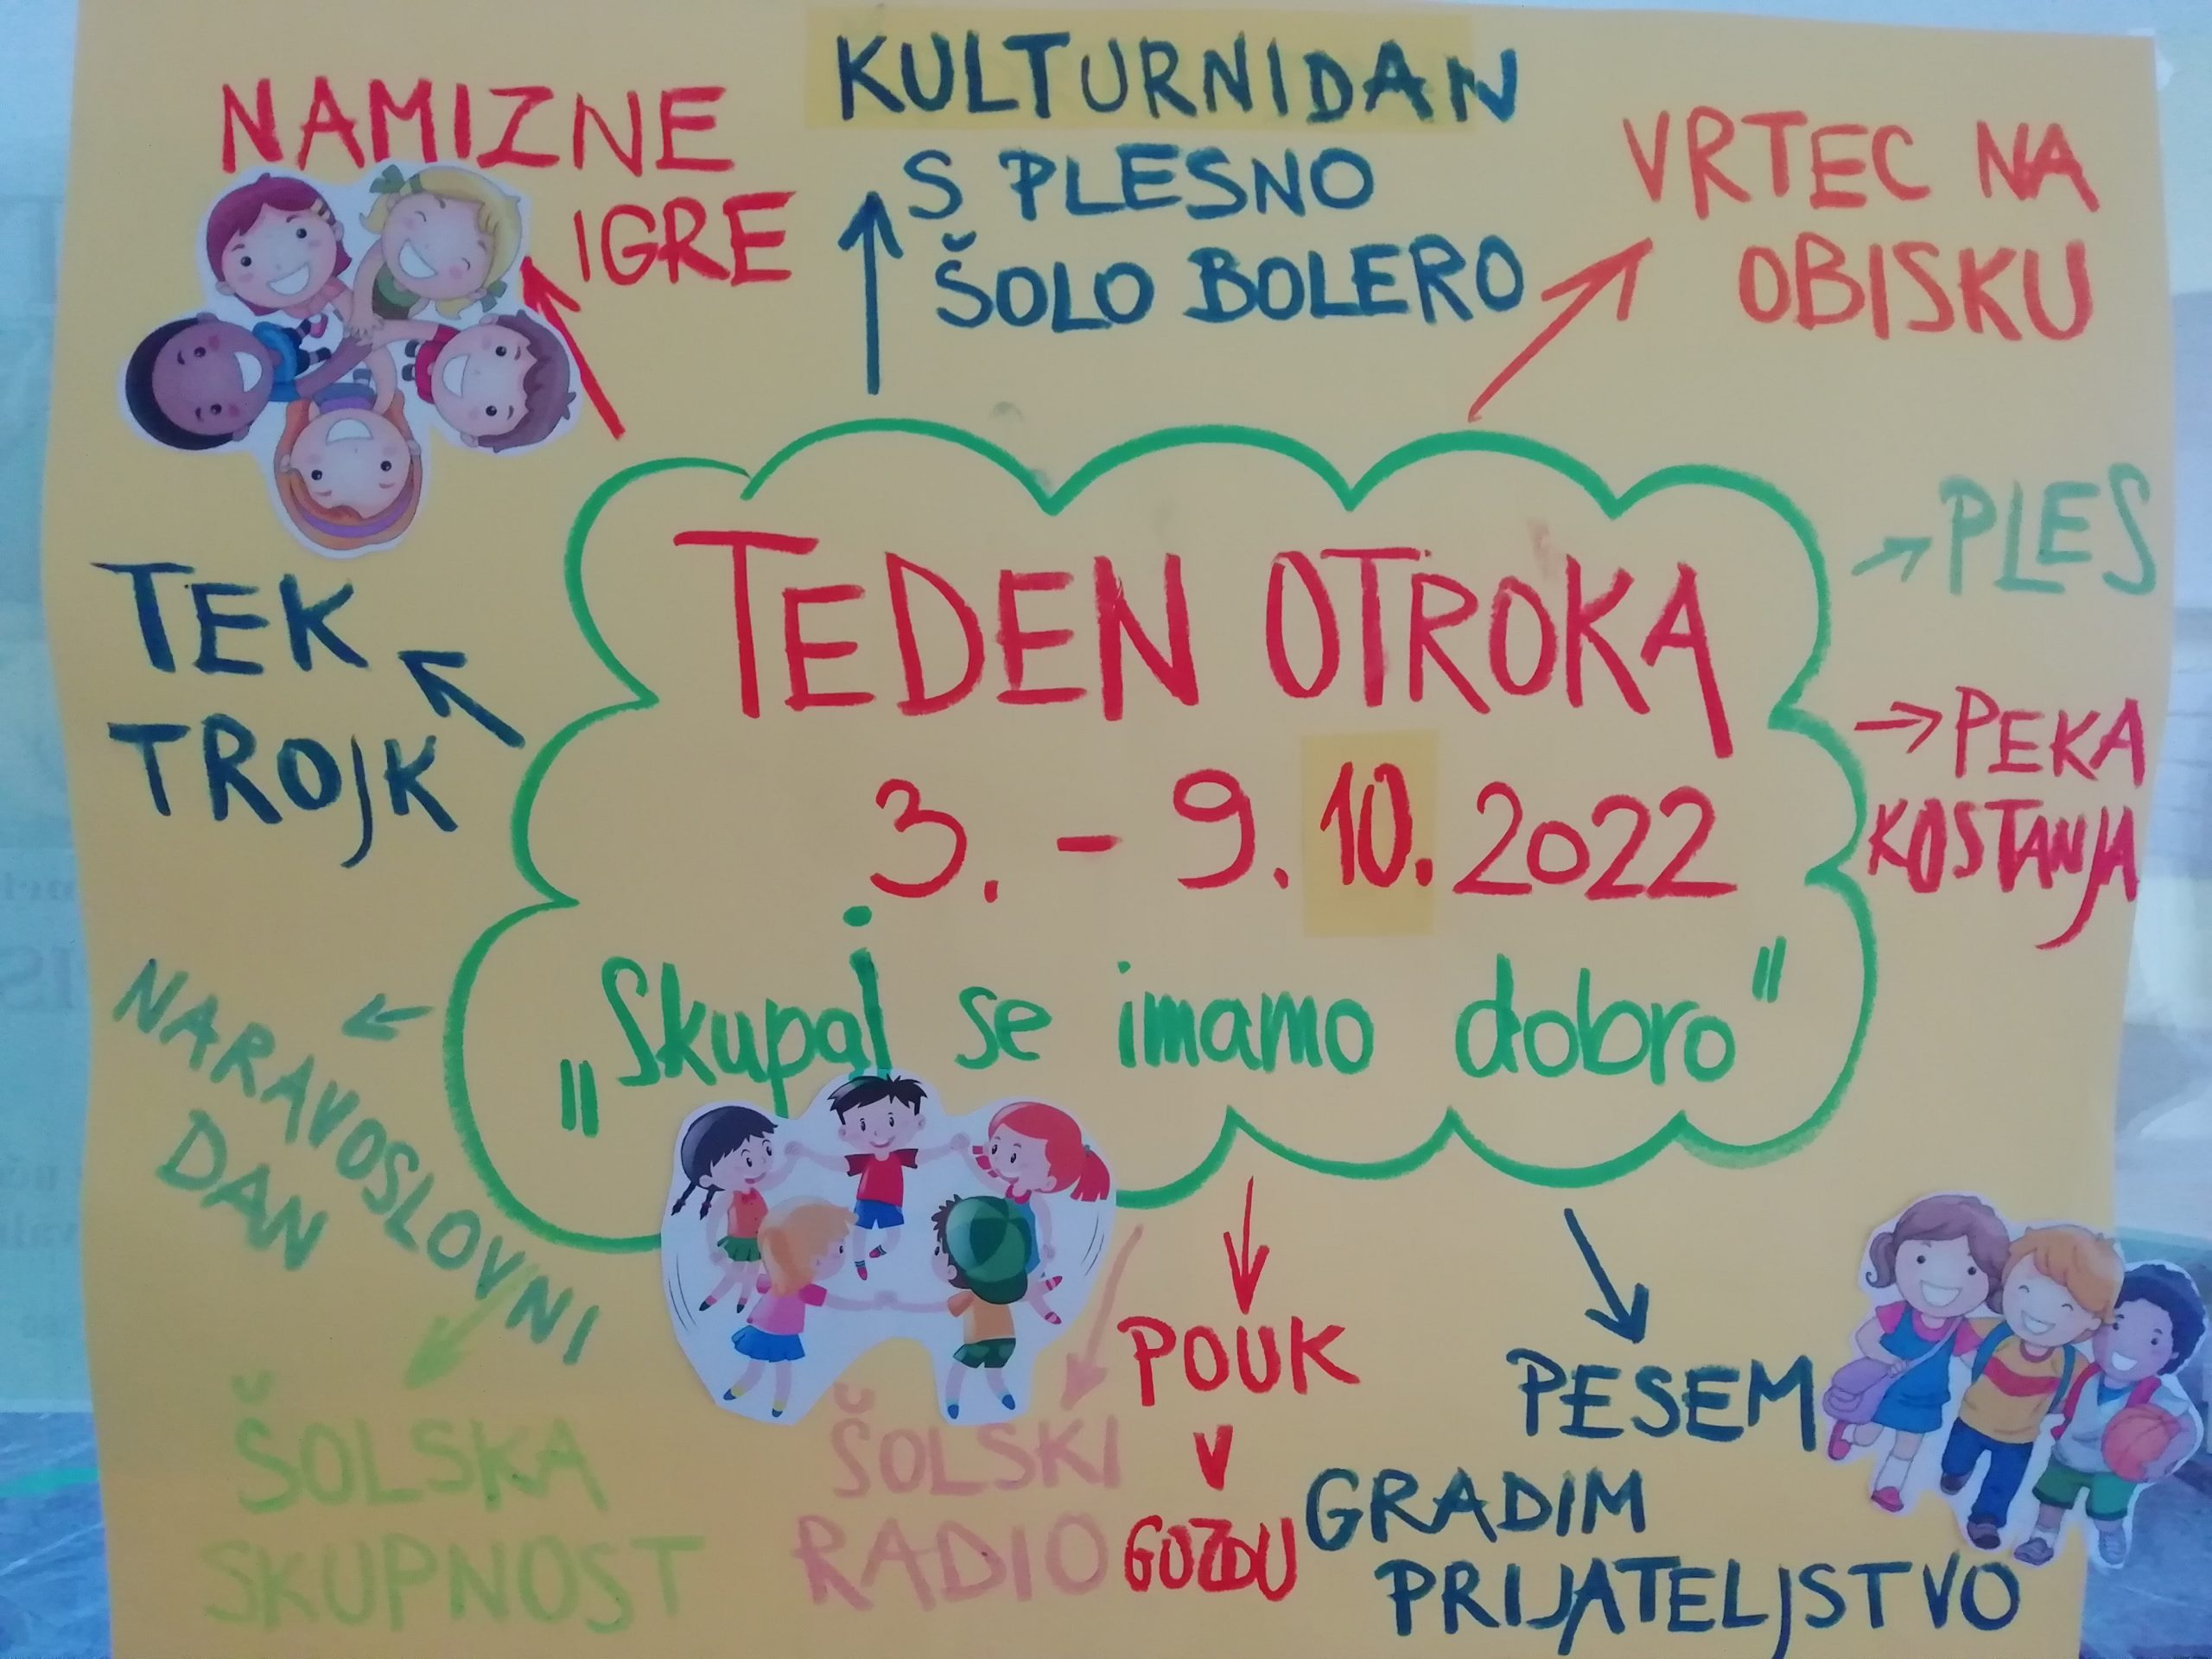 NAMIZNE
IGRE
KULTURNI DAN
S PLESNO
ŠOLO BOLERO
VRTEC NA
OBISKU
PLES
PEKA
KOSTANJA
TEK
TROJK
TEDEN OTROKA
3. - 9. 10. 2022
"Skupaj se imamo dobro"
NARAVOSLOVNI
DAN
ŠOLSKA
SKUPNOST
ŠOLSKI
RADIO
POUK
V
GOZDU
PESEM
GRADIM
PRIJATELJSTVO